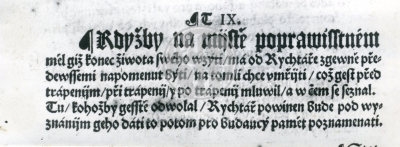 ¶T IX.
¶Kdyžby na mijstě poprawisstném
měl giž konec žiwota swého wzýti / má od Rychtáře zgewně pře-
dewssemi napomenut býti / na tomli chce vmřijti / což gest před
trápenijm / při trápenij / y po trápenij mluwil / a w čem se seznal.
Tu / kohožby gesstě odwolal / Rychtář powinen bude pod wy-
znánijm geho dáti to potom pro budaucý pamět poznamenati.